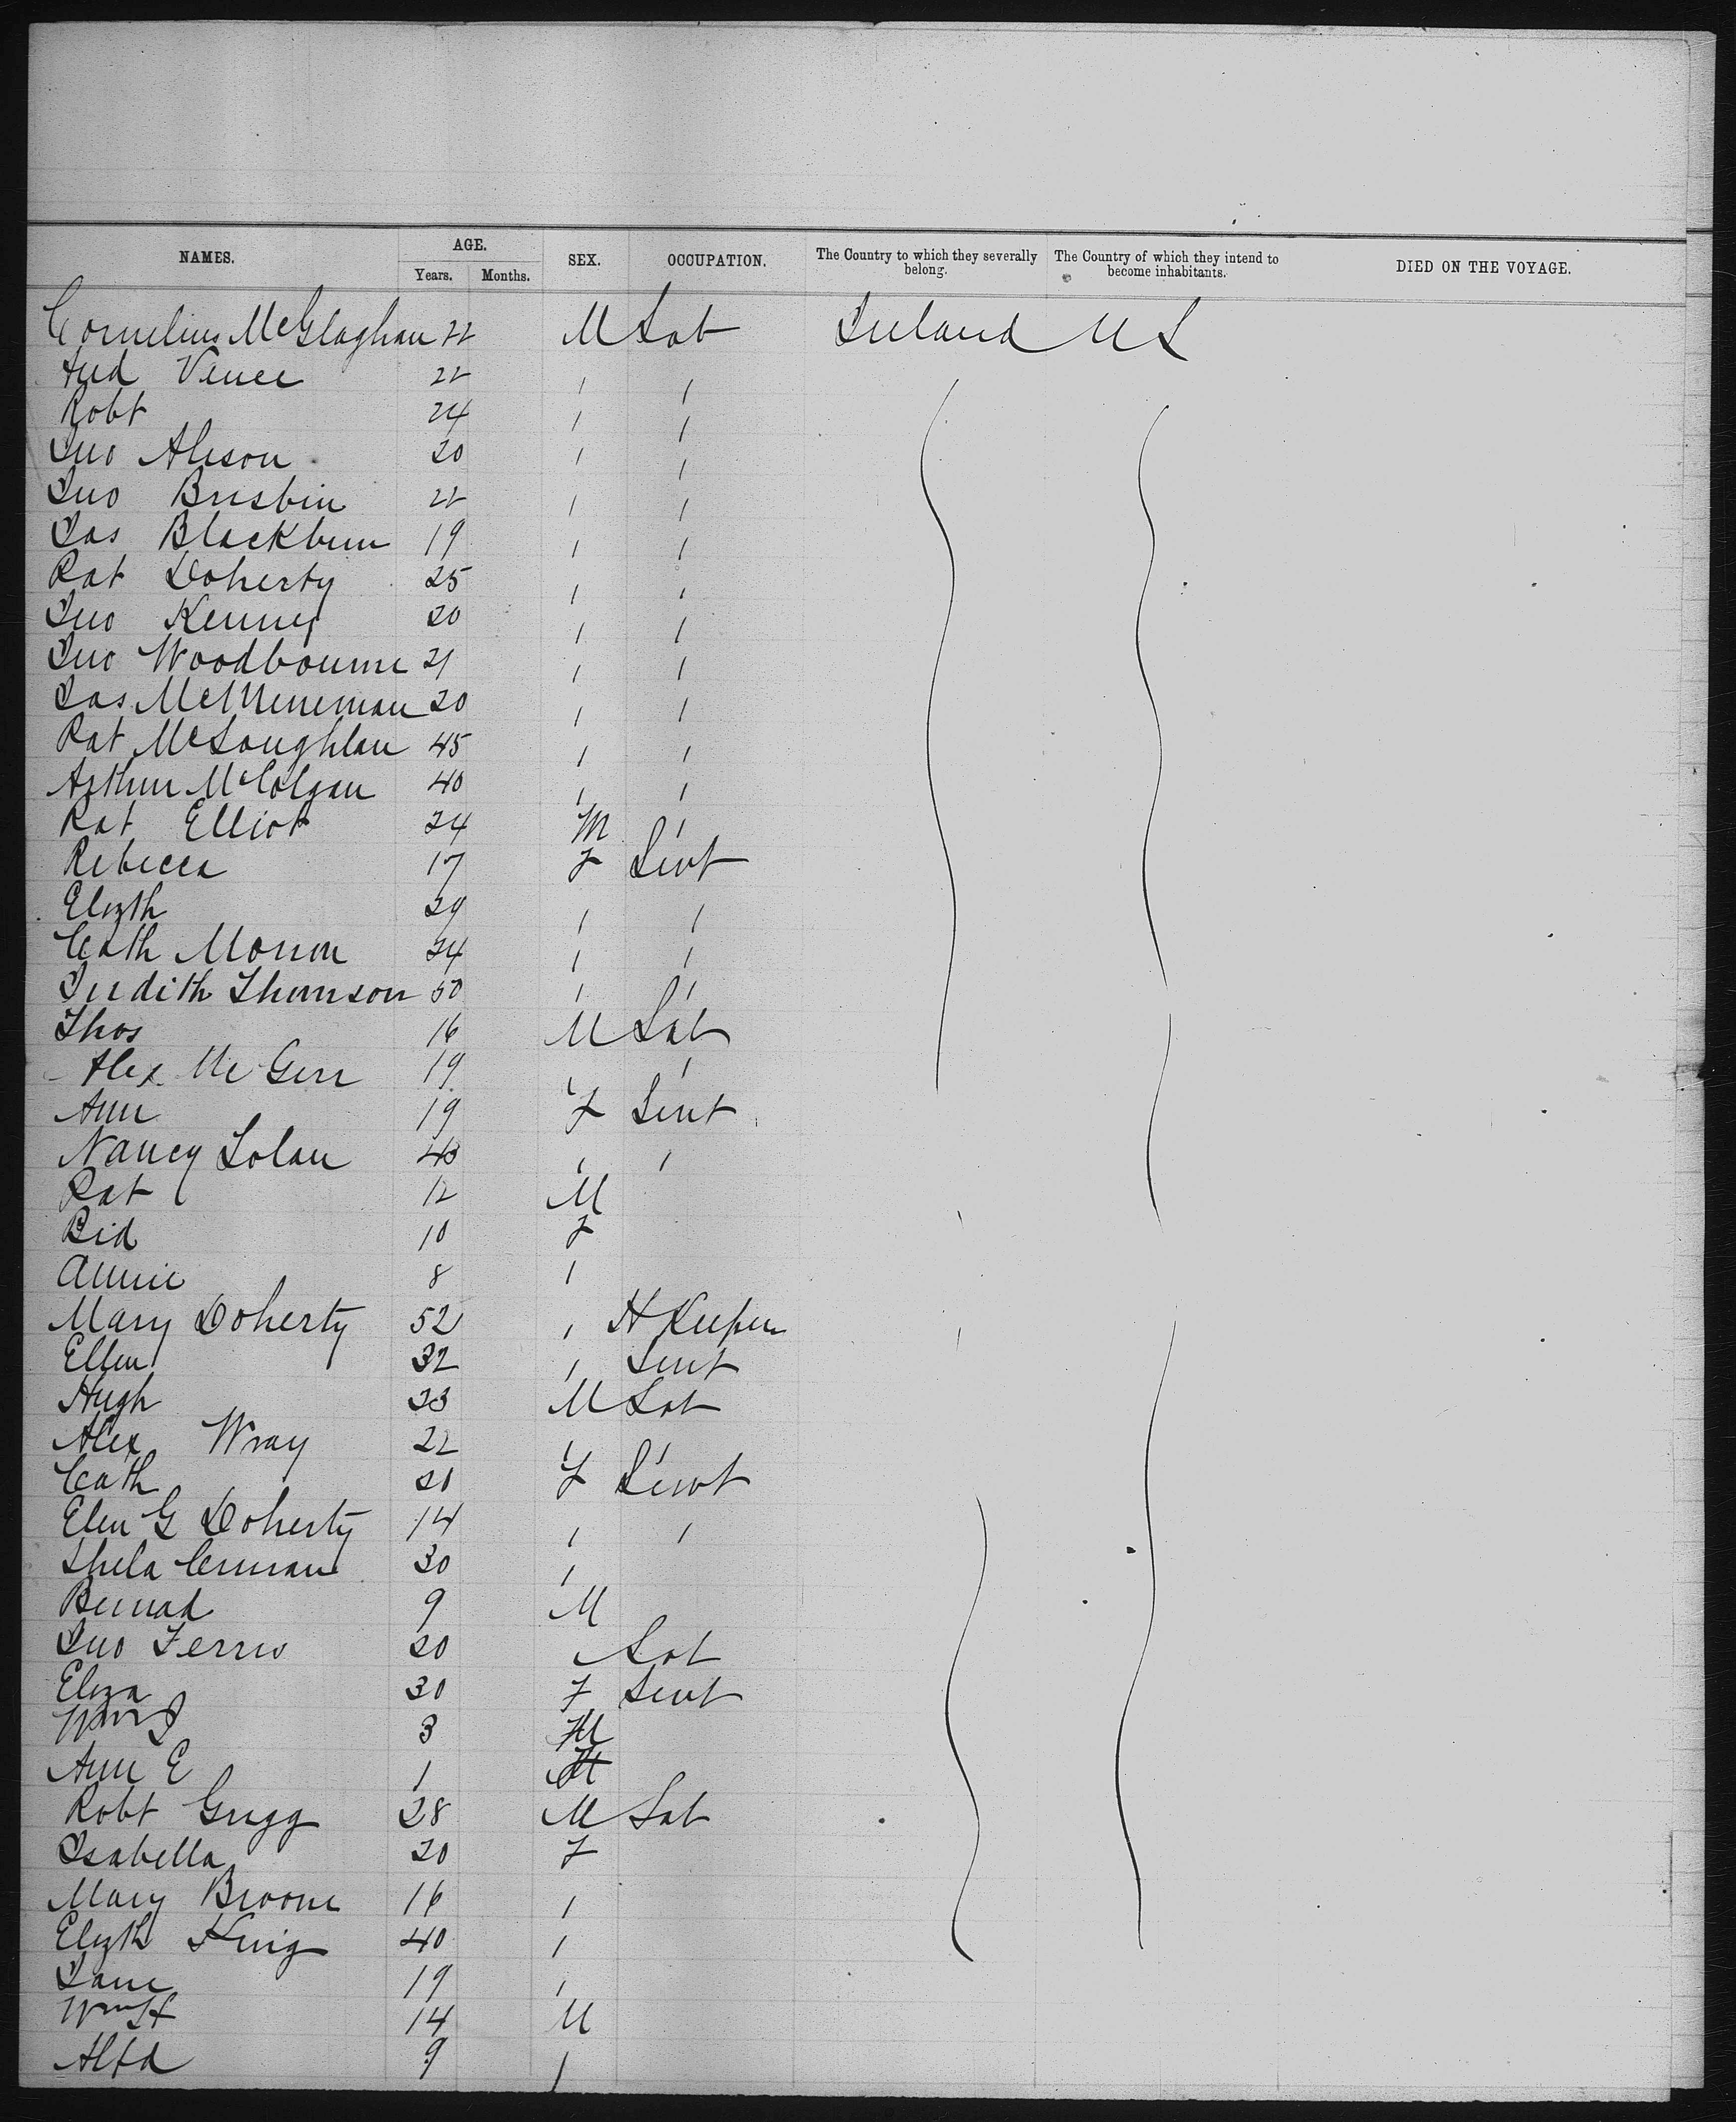 NAMES. AGE. SEX. OCCUPATION. The Country to which they severally belong. The Country of which they intend to become inhabitants. DIED ON THE VOYAGE.
Years. Months.
Cornelius McGlaghan 22 M Lab Ireland US
And Vence 22 " "
Robt 24 " "
Jno Alison 20 " "
Jno Brisbin 22 " "
Jas Blackburn 19 " "
Pat Doherty 25 " "
Jno Kenney 20 " "
Jno Woodbourne 21 " "
Jas McMeneman 20 " "
Pat McLoughlan 45 " "
Arthur McColgan 40 " "
Pat Elliot 24 M "
Rebecca 17 F Servt
Elizth 29 " "
Cath Morron 24 " "
Judith Thomson 50 " "
Thos 16 M Lab
Alex McGerr 19 " "
Ann 19 F Servt
Nancy Tolan 43 " "
Pat 12 M
Bid 10 F
Annie 8 "
Mary Doherty 52 " H Keeper
Ellen 32 " Servt
Hugh 23 M Lab
Alex Wray 22 " "
Cath 21 F Servt
Elen G Doherty 14 " "
Shela 30 "
Bernad 9 M
Jno Ferris 20 Lab
Eliza 30 F Servt
Wm J 3 M
Ann E 1
Robt Grigg 28 M Lab
Isabella 20 F
Mary Broom 16 "
Elizth King 40 "
Jane 19 "
Wm H 14 M
Alfd 9 "